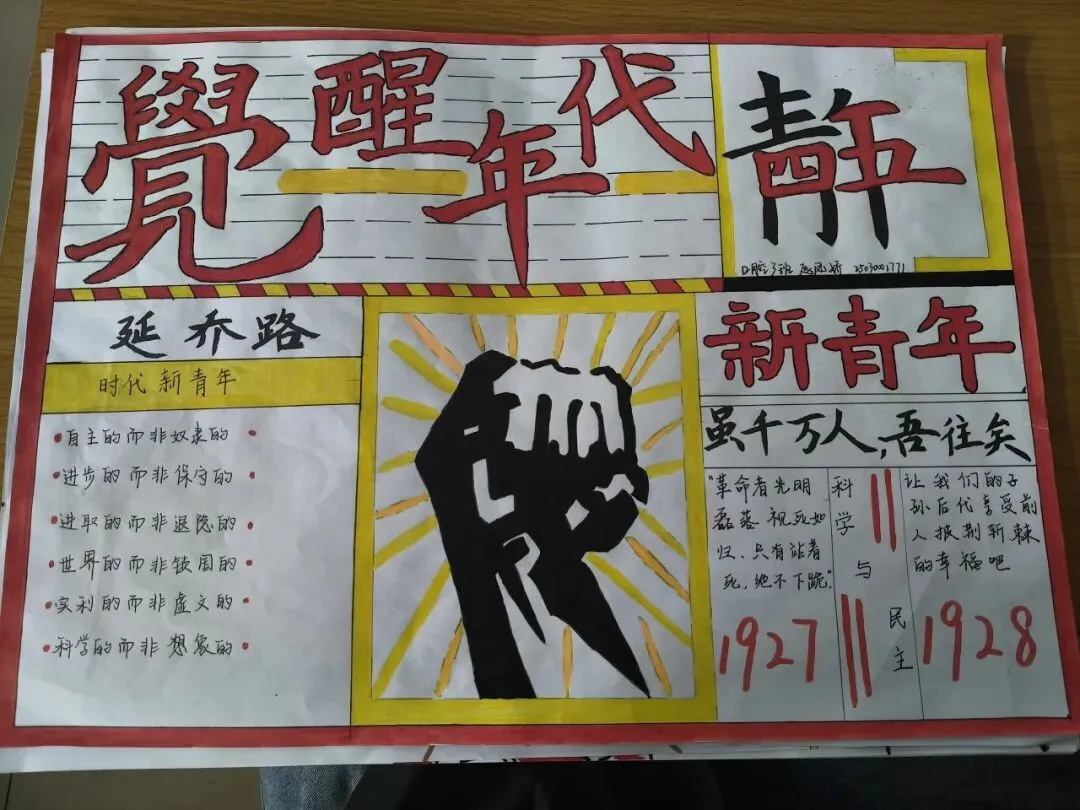 覺醒年代
延乔路
时代新青年
自主的而非奴隶的
进步的而非保守的
进取的而非退隐的
世界的而非锁国的
实利的而非虚文的
科学的而非想象的
新青年
虽千万人,吾往矣
"革命者光明
磊落、视死如
归、只有站着
死，绝不下跪"
1927
科
学
与
民
主
让我们的子
孙后代享受前
人披荆斩棘
的幸福吧
1928